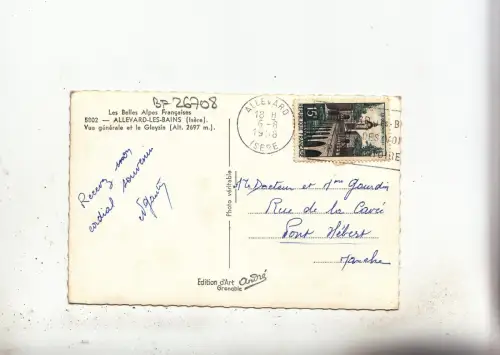 BF 26708
Les Belles Alpes Françaises
8002 — ALLEVARD-LES-BAINS (Isère).
Vue générale et le Gleysin (Alt. 2697 m.).
ALLEVARD
18 H
6-8
1958
ISERE
15F
Recevez mon
cordial souvenir
Photo véritable
Mr Docteur et Mme Gourdin
Rue de la Cavée
Pont Hébert
Manche
Edition d'Art André
Grenoble